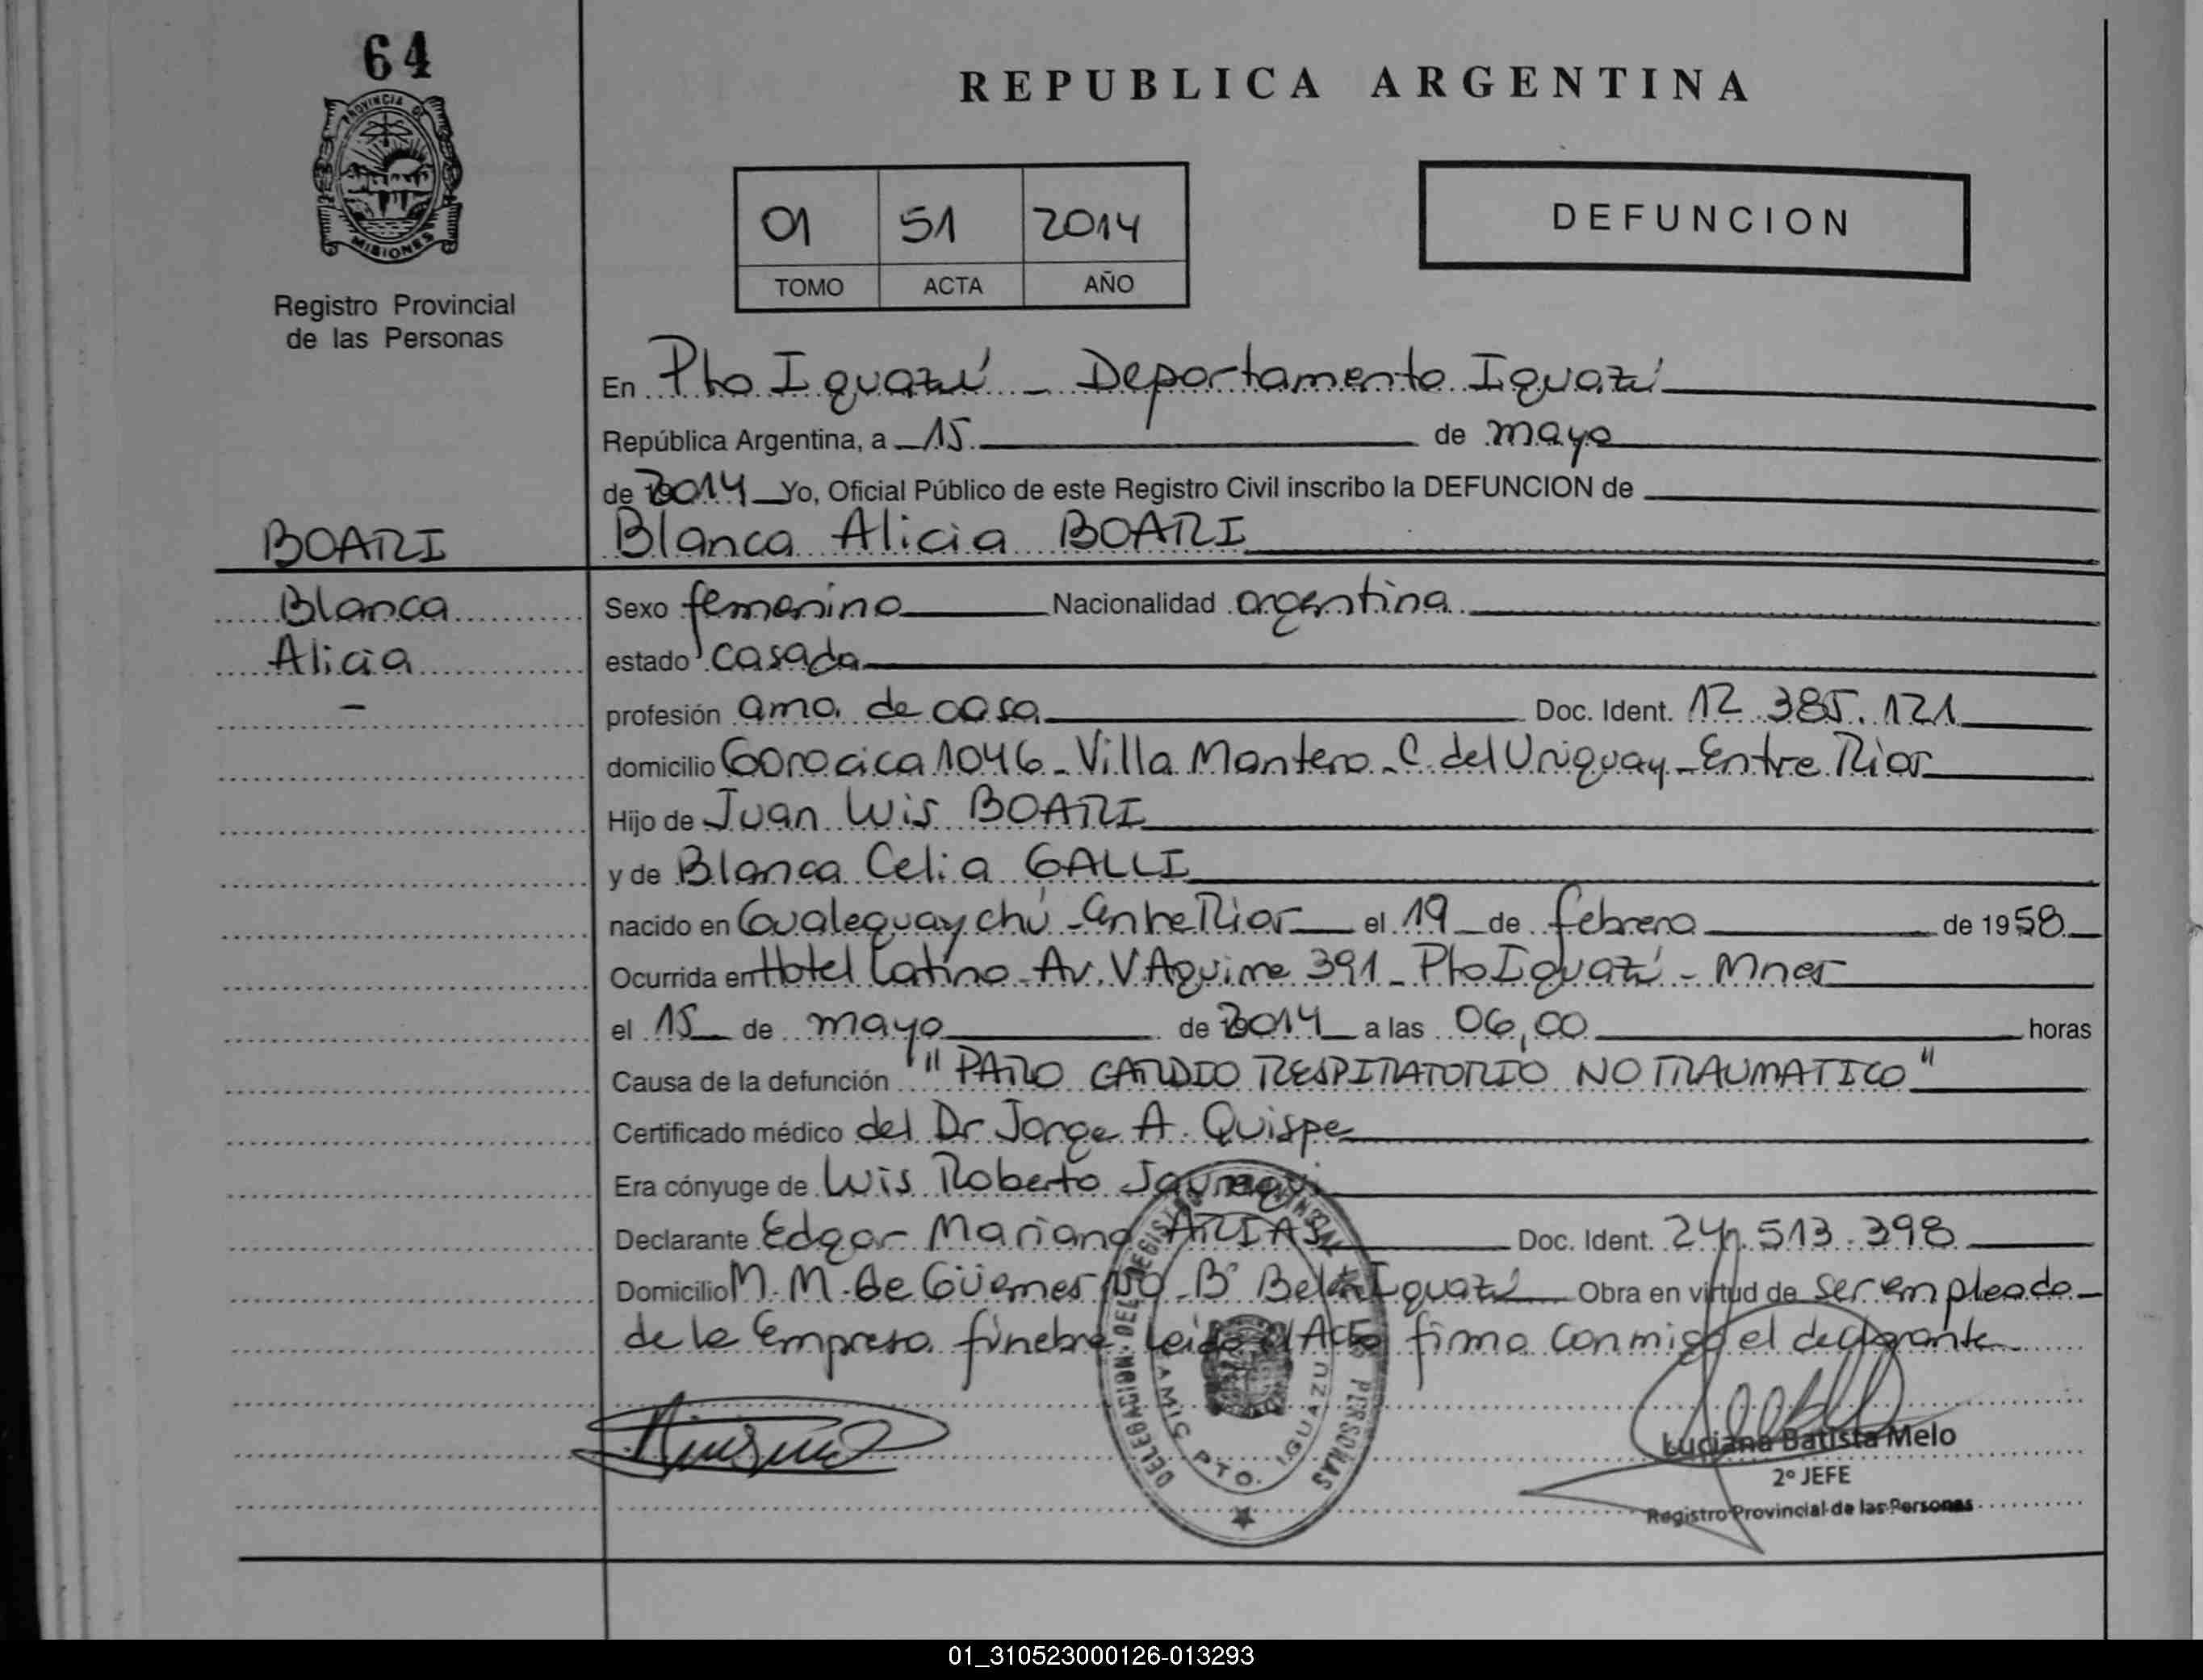 64
PROVINCIA DE
MISIONES
Registro Provincial
de las Personas
REPUBLICA ARGENTINA
01 51 2014
TOMO ACTA AÑO
DEFUNCION
En Pto Iguazú - Departamento Iguazú
República Argentina, a 15 de mayo
de 2014 Yo, Oficial Público de este Registro Civil inscribo la DEFUNCION de
BOARI
Blanca Alicia BOARI
Blanca
Alicia
-
Sexo femenino Nacionalidad argentina
estado casada
profesión ama de casa Doc. Ident. 12.385.121
domicilio Gorocica 1046 - Villa Mantero - C. del Uruguay - Entre Rios
Hijo de Juan Luis BOARI
y de Blanca Celia GALLI
nacido en Gualeguaychú - Entre Rios el 19 de febrero de 1958
Ocurrida en Hotel Latino - Av. V Aguirre 391 - Pto Iguazú - Mnes
el 15 de mayo de 2014 a las 06,00 horas
Causa de la defunción "PARO CARDIO RESPIRATORIO NO TRAUMATICO"
Certificado médico del Dr Jorge A. Quispe
Era cónyuge de Luis Roberto Jauregui
Declarante Edgar Mariano ARIAS Doc. Ident. 24.513.398
Domicilio M. M. de Güemes Bº Belén Iguazú Obra en virtud de ser empleado
de la Empresa fúnebre Leida el Acta firma conmigo el declarante
DELEGACION DEL REGISTRO PROVINCIAL DE LAS PERSONAS
PTO. IGUAZU
Luciana Batista Melo
2º JEFE
Registro Provincial de las Personas
01_310523000126-013293